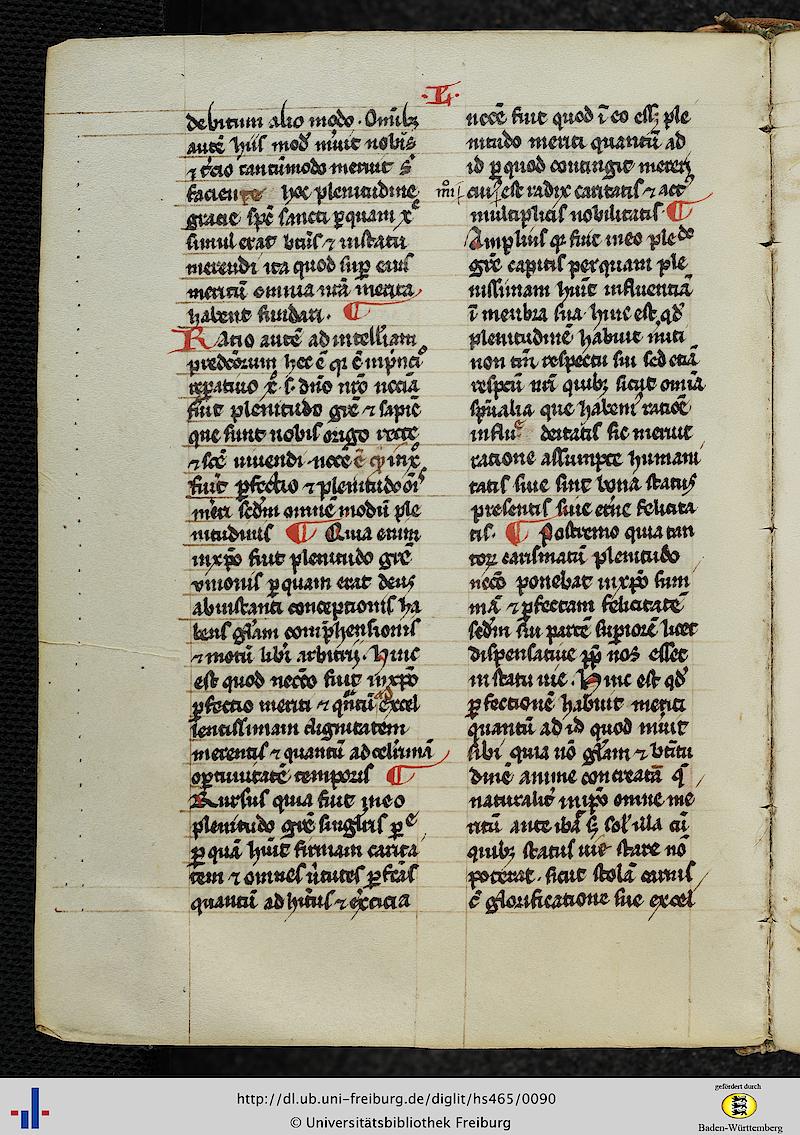 ·L·
debitum alio modo · Omīb;
autē hiis mod' m̄uit nobis
⁊ t'cio tantūmodo meruit s'
faciente hoc plenitudinē
gracie sp̄c sancti p̱quam x̄
simul erat bt̄us ⁊ in statu
merendi ita quod sup̱ eius
meritū omnia nr̄a merita
habent fundari · ¶
Racio autē ad intelliam
predcōrum hec ē qꝛ ē in p̄nci
reparatiuo x̄ .s. dn̄o nr̄o
fuit plenitudo grē ⁊ sapiē
que sunt nobis origo recte
⁊ scē uiuendi necē ē qꝫ in x̄
fuit p̱fectio ⁊ plenitudo oīs
mēti scdm omnē modū ple
nitudinis ¶ Quia enim
in xp̄o fuit plenitudo grē
vnionis p̱quam erat deus
ab instanti conceptionis ha
bens gl̄am comp̄hensionis
⁊ motū libī arbitrij. Hinc
est quod necē̄o fuit in xp̄o
p̱fectio meriti ⁊ qn̄tū ad excel
lentissimam dignitatem
merentis ⁊ quantū ad celimā
oportunitatē temporis ¶
Rursus quia fuit in eo
plenitudo grē singl̄ris p̱e
p̱quā hūit firmam carita
tem ⁊ omnes ūtutes p̱fcās
quantū ad hītus ⁊ ex̄cicia
necē fuit quod ī eo ess; ple
nitudo meriti quantū ad
id p̱quod contingit mereri
cui est radix caritatis ⁊ act'
multiplicis nobilitatis ¶
Amplius qꝛ fuit in eo ple do
grē capitis per quam ple
nissimam hūit influentiā
ī menbra sua hinc est qd'
plenitudinē habuit mīti
non tm̄ respectu sui sed etiā
respcū nr̄i quib; sicut omīa
sp̄ualia que habem' ratiōe
influ deitatis sic meruit
ratione assumpte humani
tatis siue sint bona status
presentis siue et̄ne felicita
tis. ¶ Postremo quia tan
torꝝ carismatū plenitudo
necē̄o ponebat in xp̄o sum
mā ⁊ p̱fectam felicitatē
scdm sui partē supiorē licet
dispensatiue pp̄ nos esset
in statu uie. Hinc est qd'
p̱fectionē habuit meriti
quantū ad id quod m̄uit
sibi quia nō gl̄am ⁊ btītu
dinē anime concreatā q̄
naturalit' in ip̄o omne me
ritū ante ibā s; sol' illa cū
quib; status uie stare nō
poterat · sicut stolā carnis
ē glorificatione sue excel
http://dl.ub.uni-freiburg.de/diglit/hs465/0090
© Universitätsbibliothek Freiburg
gefördert durch
Baden-Württemberg